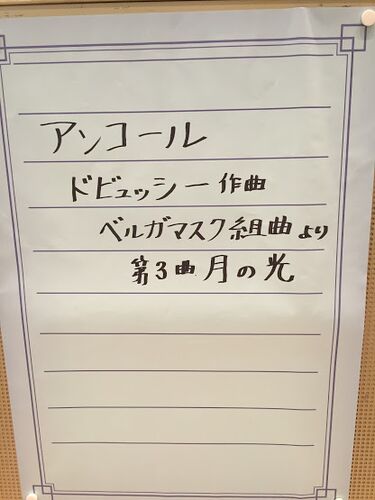 アンコール
ドビュッシー作曲
ベルガマスク組曲より
第3曲月の光